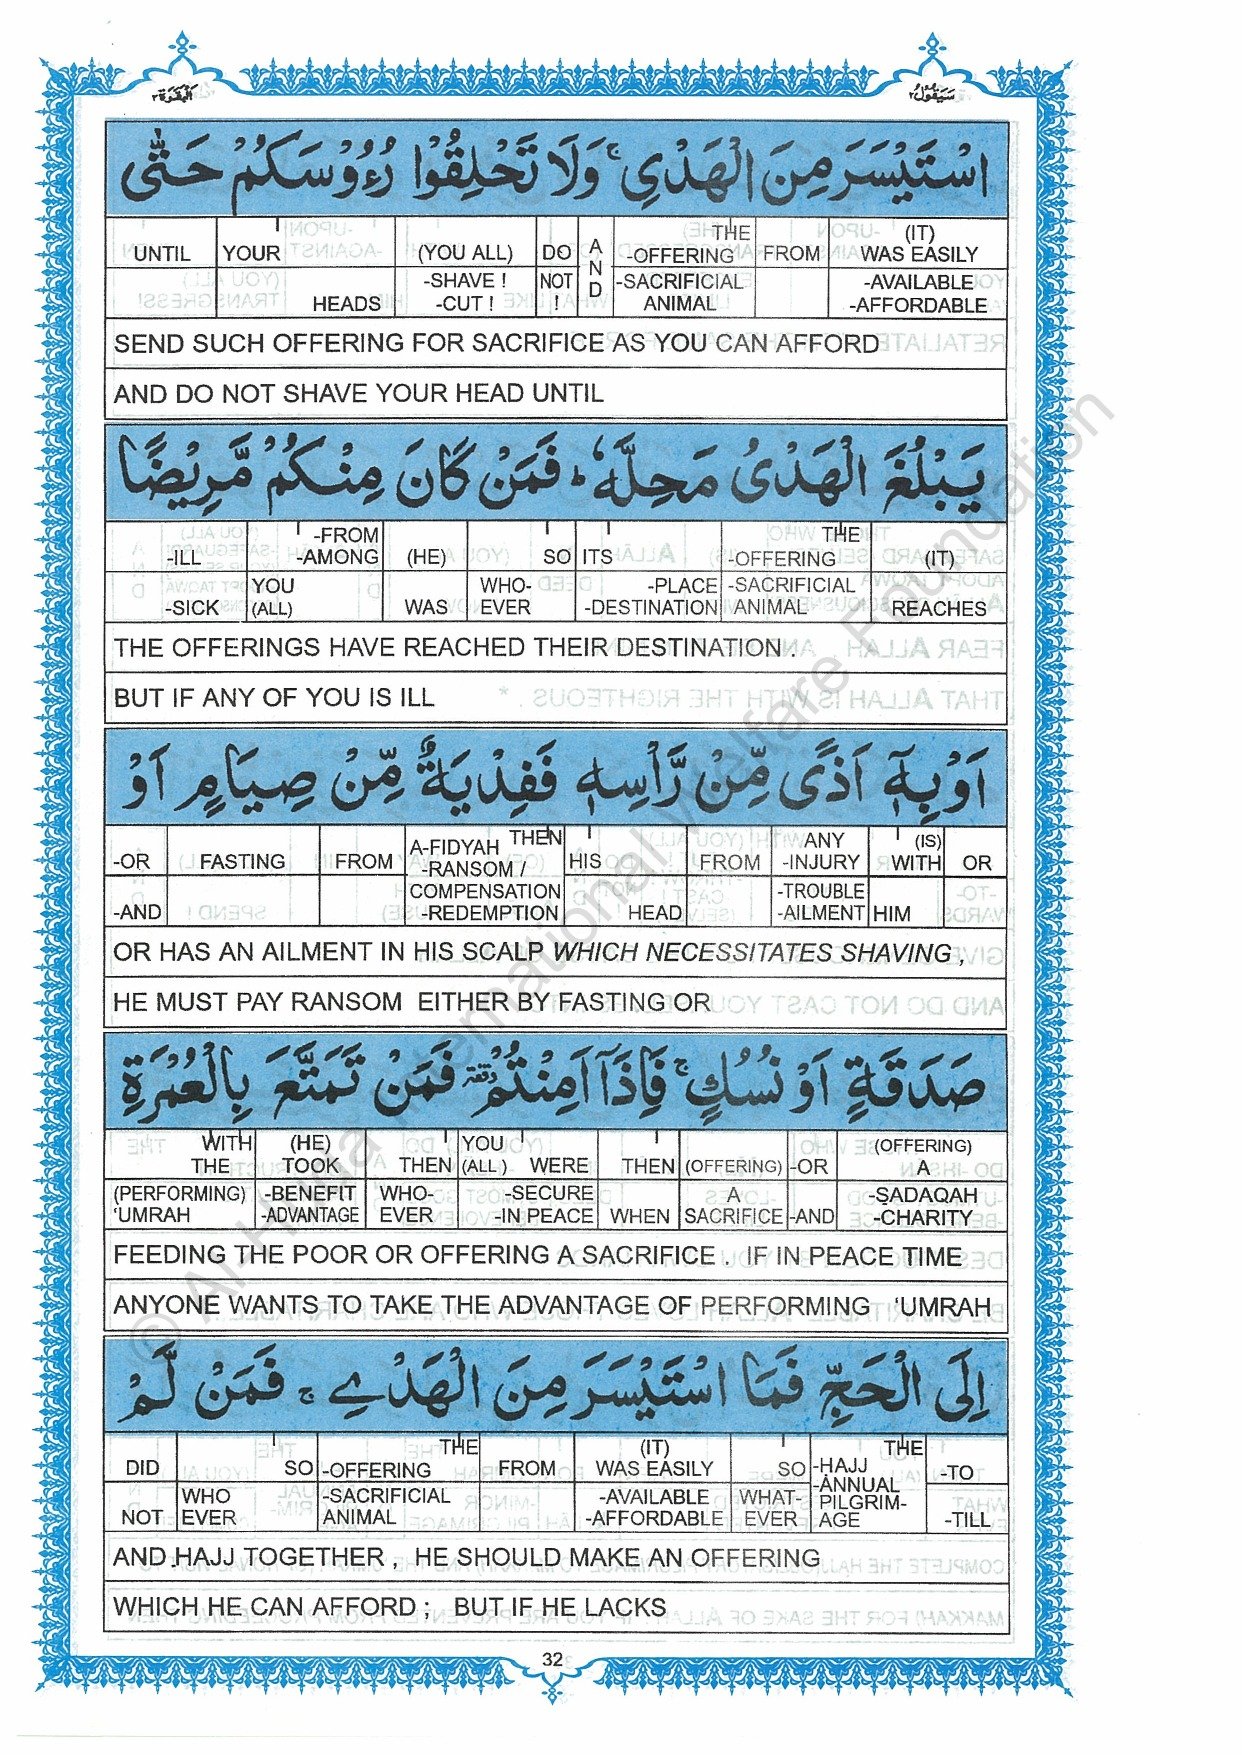 البقرة ٢
سيقول ٢
اسْتَيْسَرَ مِنَ الْهَدْيِ ۚ وَلَا تَحْلِقُوْا رُءُوْسَكُمْ حَتّٰى
UNTIL YOUR (YOU ALL) DO AND THE -OFFERING FROM (IT) WAS EASILY
HEADS -SHAVE ! -CUT ! NOT ! -SACRIFICIAL ANIMAL -AVAILABLE -AFFORDABLE
SEND SUCH OFFERING FOR SACRIFICE AS YOU CAN AFFORD
AND DO NOT SHAVE YOUR HEAD UNTIL
يَبْلُغَ الْهَدْىُ مَحِلَّهٗ ؕ فَمَنْ كَانَ مِنْكُمْ مَّرِيْضًا
-ILL -FROM -AMONG (HE) SO ITS THE -OFFERING (IT)
-SICK YOU (ALL) WAS WHO- EVER -PLACE -DESTINATION -SACRIFICIAL ANIMAL REACHES
THE OFFERINGS HAVE REACHED THEIR DESTINATION .
BUT IF ANY OF YOU IS ILL
اَوْ بِهٖٓ اَذًى مِّنْ رَّاْسِهٖ فَفِدْيَةٌ مِّنْ صِيَامٍ اَوْ
-OR FASTING FROM THEN A-FIDYAH -RANSOM / HIS FROM ANY -INJURY (IS) WITH OR
-AND COMPENSATION -REDEMPTION HEAD -TROUBLE -AILMENT HIM
OR HAS AN AILMENT IN HIS SCALP WHICH NECESSITATES SHAVING ,
HE MUST PAY RANSOM EITHER BY FASTING OR
صَدَقَةٍ اَوْ نُسُكٍ ۚ فَاِذَآ اَمِنْتُمْ وقفة فَمَنْ تَمَتَّعَ بِالْعُمْرَةِ
WITH THE (HE) TOOK THEN YOU (ALL) WERE THEN (OFFERING) -OR (OFFERING) A
(PERFORMING) 'UMRAH -BENEFIT -ADVANTAGE WHO- EVER -SECURE -IN PEACE WHEN A SACRIFICE -AND -SADAQAH -CHARITY
FEEDING THE POOR OR OFFERING A SACRIFICE . IF IN PEACE TIME
ANYONE WANTS TO TAKE THE ADVANTAGE OF PERFORMING 'UMRAH
اِلَى الْحَجِّ فَمَا اسْتَيْسَرَ مِنَ الْهَدْيِ ۚ فَمَنْ لَّمْ
DID SO THE -OFFERING FROM (IT) WAS EASILY SO THE -HAJJ -ANNUAL -TO
NOT WHO EVER -SACRIFICIAL ANIMAL -AVAILABLE -AFFORDABLE WHAT- EVER PILGRIM- AGE -TILL
AND HAJJ TOGETHER , HE SHOULD MAKE AN OFFERING
WHICH HE CAN AFFORD ; BUT IF HE LACKS
32
© Al-Huda International Welfare Foundation